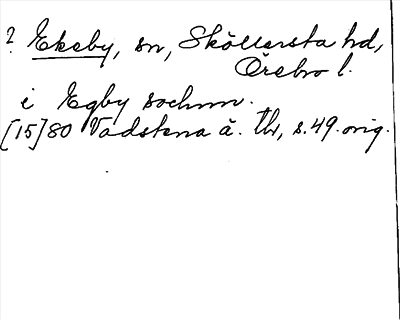 ? Ekeby, sn, Sköllersta hd,
Örebro l.
i Egby sochnn.
[15]80 Vadstena ä. tb, s. 49. orig.